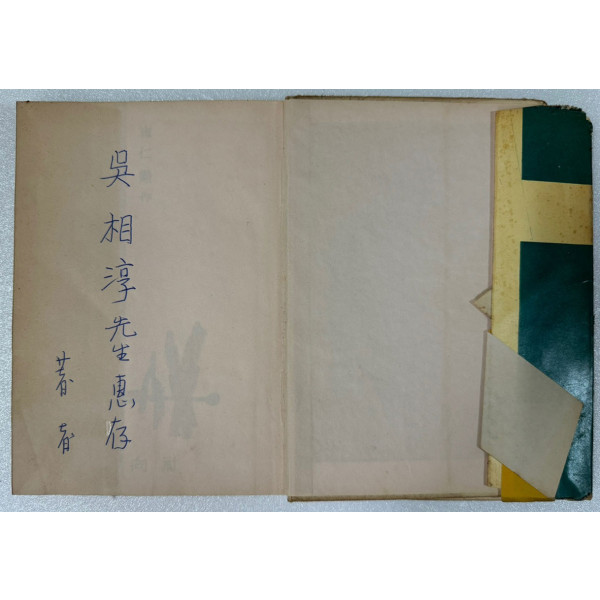 吳相淳先生惠存
著者